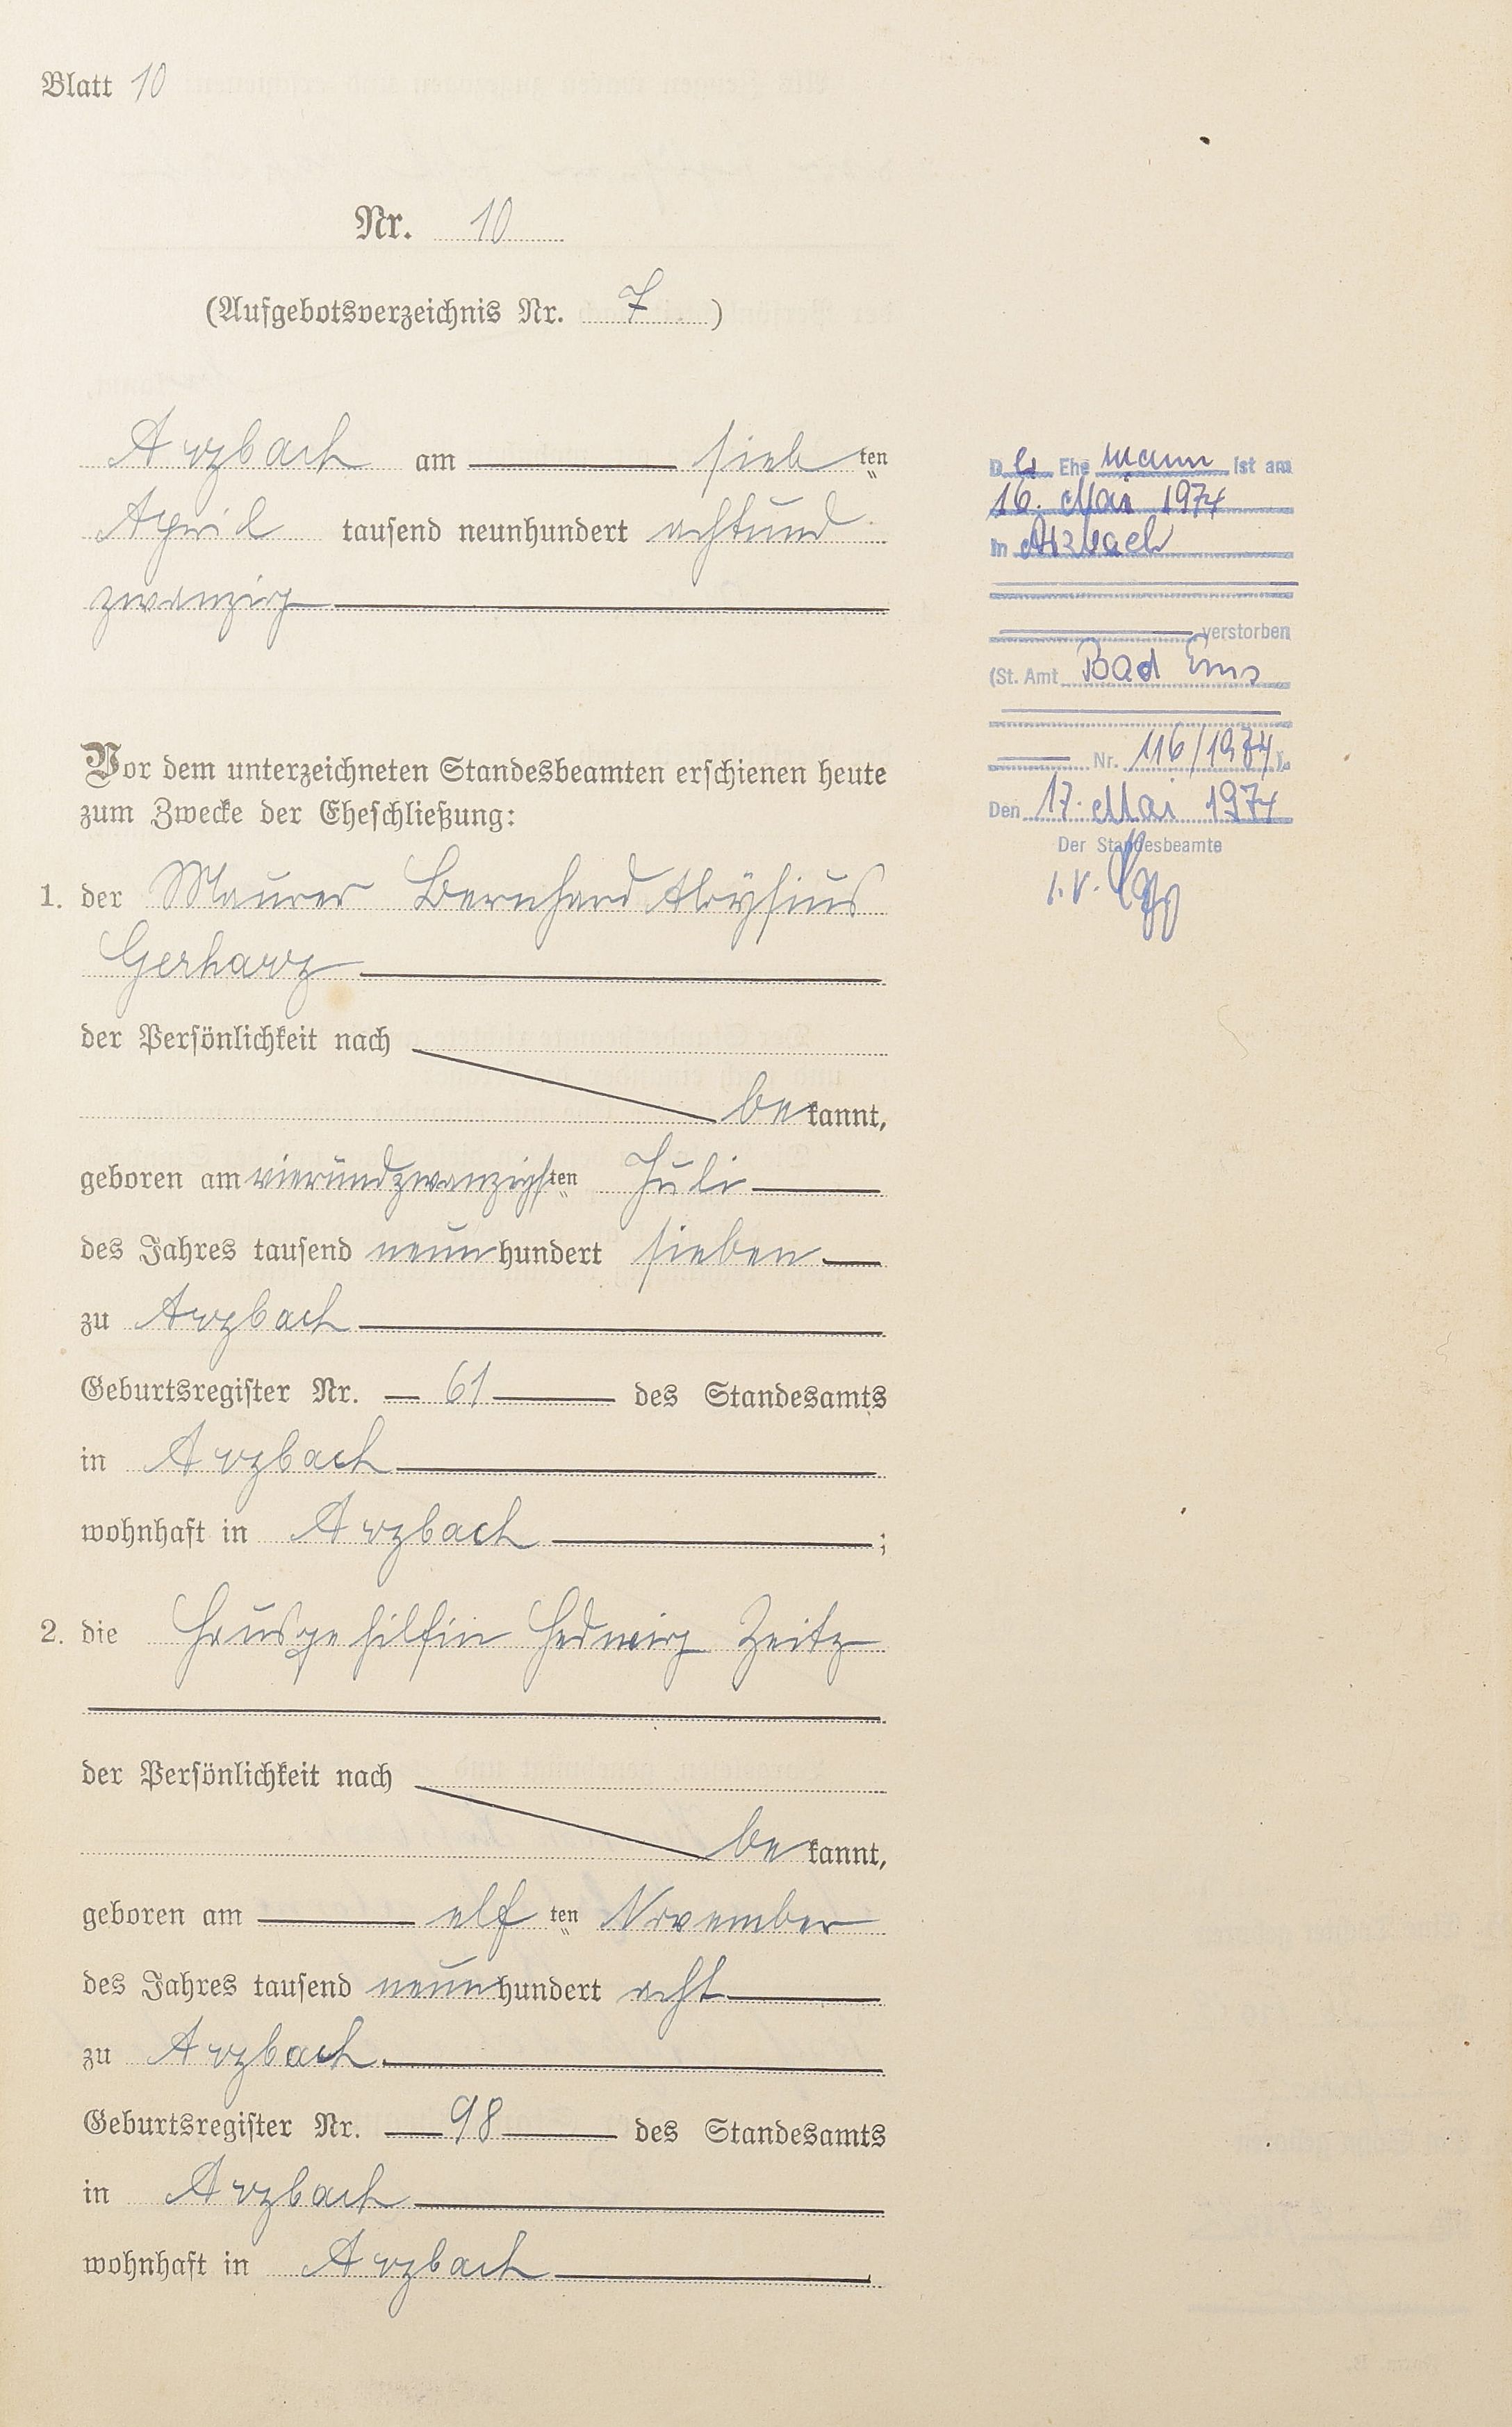 Blatt 10
Nr. 10
(Aufgebotsverzeichnis Nr. 7)
Arzbach am sieb ten
April tausend neunhundert achtund
zwanzig
Vor dem unterzeichneten Standesbeamten erschienen heute
zum Zwecke der Eheschließung:
1. der Maurer Bernhard Aloysius
Gerharz
der Persönlichkeit nach
be kannt,
geboren am vierundzwanzigsten Juli
des Jahres tausend neun hundert sieben
zu Arzbach
Geburtsregister Nr. 61 des Standesamts
in Arzbach
wohnhaft in Arzbach ;
2. die Hausgehilfin Hedwig Zeitz
der Persönlichkeit nach
be kannt,
geboren am elf ten November
des Jahres tausend neun hundert acht
zu Arzbach
Geburtsregister Nr. 98 des Standesamts
in Arzbach
wohnhaft in Arzbach
Der Ehe mann ist am
16. Mai 1974
in Arzbach
verstorben
(St. Amt Bad Ems
Nr. 116/1974).
Den 17. Mai 1974
Der Standesbeamte
i.V.